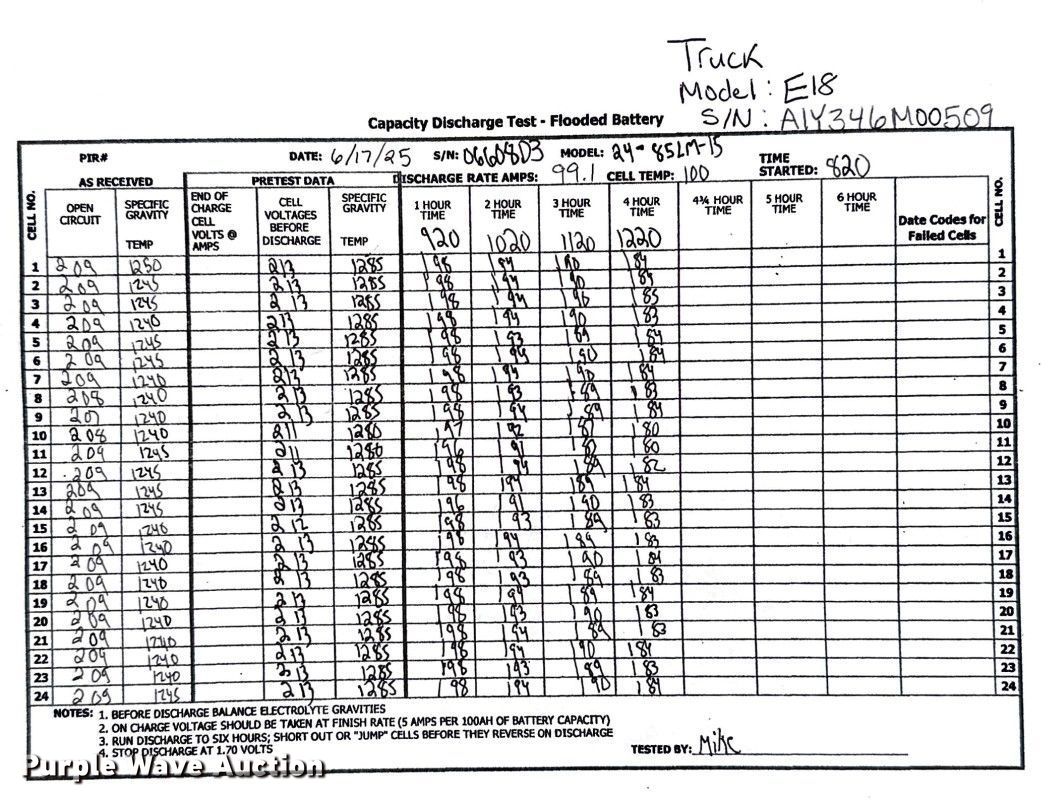 Truck
Model: E18
S/N: A1Y346M00509
Capacity Discharge Test - Flooded Battery
PIR# DATE: 6/17/25 S/N: 0660803 MODEL: 24-85LM-15 TIME STARTED: 820
DISCHARGE RATE AMPS: 99.1 CELL TEMP: 100
CELL NO. AS RECEIVED END OF CHARGE CELL VOLTS @ AMPS PRETEST DATA 1 HOUR TIME 2 HOUR TIME 3 HOUR TIME 4 HOUR TIME 4¾ HOUR TIME 5 HOUR TIME 6 HOUR TIME Date Codes for Failed Cells CELL NO.
OPEN CIRCUIT SPECIFIC GRAVITY TEMP CELL VOLTAGES BEFORE DISCHARGE SPECIFIC GRAVITY TEMP 920 1020 1120 1220
1 209 1250 213 1285 198 194 190 184 1
2 209 1245 213 1285 198 194 190 184 2
3 209 1245 213 1285 198 194 190 185 3
4 209 1240 213 1285 198 194 190 183 4
5 209 1245 213 1285 198 193 189 184 5
6 209 1245 213 1285 198 194 190 184 6
7 209 1240 213 1285 198 194 190 184 7
8 208 1240 213 1285 198 193 189 183 8
9 207 1240 213 1285 198 194 189 184 9
10 208 1240 211 1280 197 192 187 180 10
11 209 1245 211 1280 196 191 187 180 11
12 209 1245 213 1285 198 194 189 182 12
13 209 1245 213 1285 198 194 189 184 13
14 209 1245 213 1285 196 191 190 183 14
15 209 1240 212 1285 198 193 189 183 15
16 209 1240 213 1285 198 194 189 183 16
17 209 1240 213 1285 198 193 190 184 17
18 209 1240 213 1285 198 193 189 183 18
19 209 1240 213 1285 198 194 189 184 19
20 209 1240 213 1285 198 193 190 183 20
21 209 1240 213 1285 198 194 189 183 21
22 209 1240 213 1285 198 194 190 184 22
23 209 1240 213 1285 198 193 189 183 23
24 209 1245 213 1285 198 194 190 184 24
NOTES: 1. BEFORE DISCHARGE BALANCE ELECTROLYTE GRAVITIES
2. ON CHARGE VOLTAGE SHOULD BE TAKEN AT FINISH RATE (5 AMPS PER 100AH OF BATTERY CAPACITY)
3. RUN DISCHARGE TO SIX HOURS; SHORT OUT OR "JUMP" CELLS BEFORE THEY REVERSE ON DISCHARGE
4. STOP DISCHARGE AT 1.70 VOLTS
TESTED BY: Mike
Purple Wave Auction